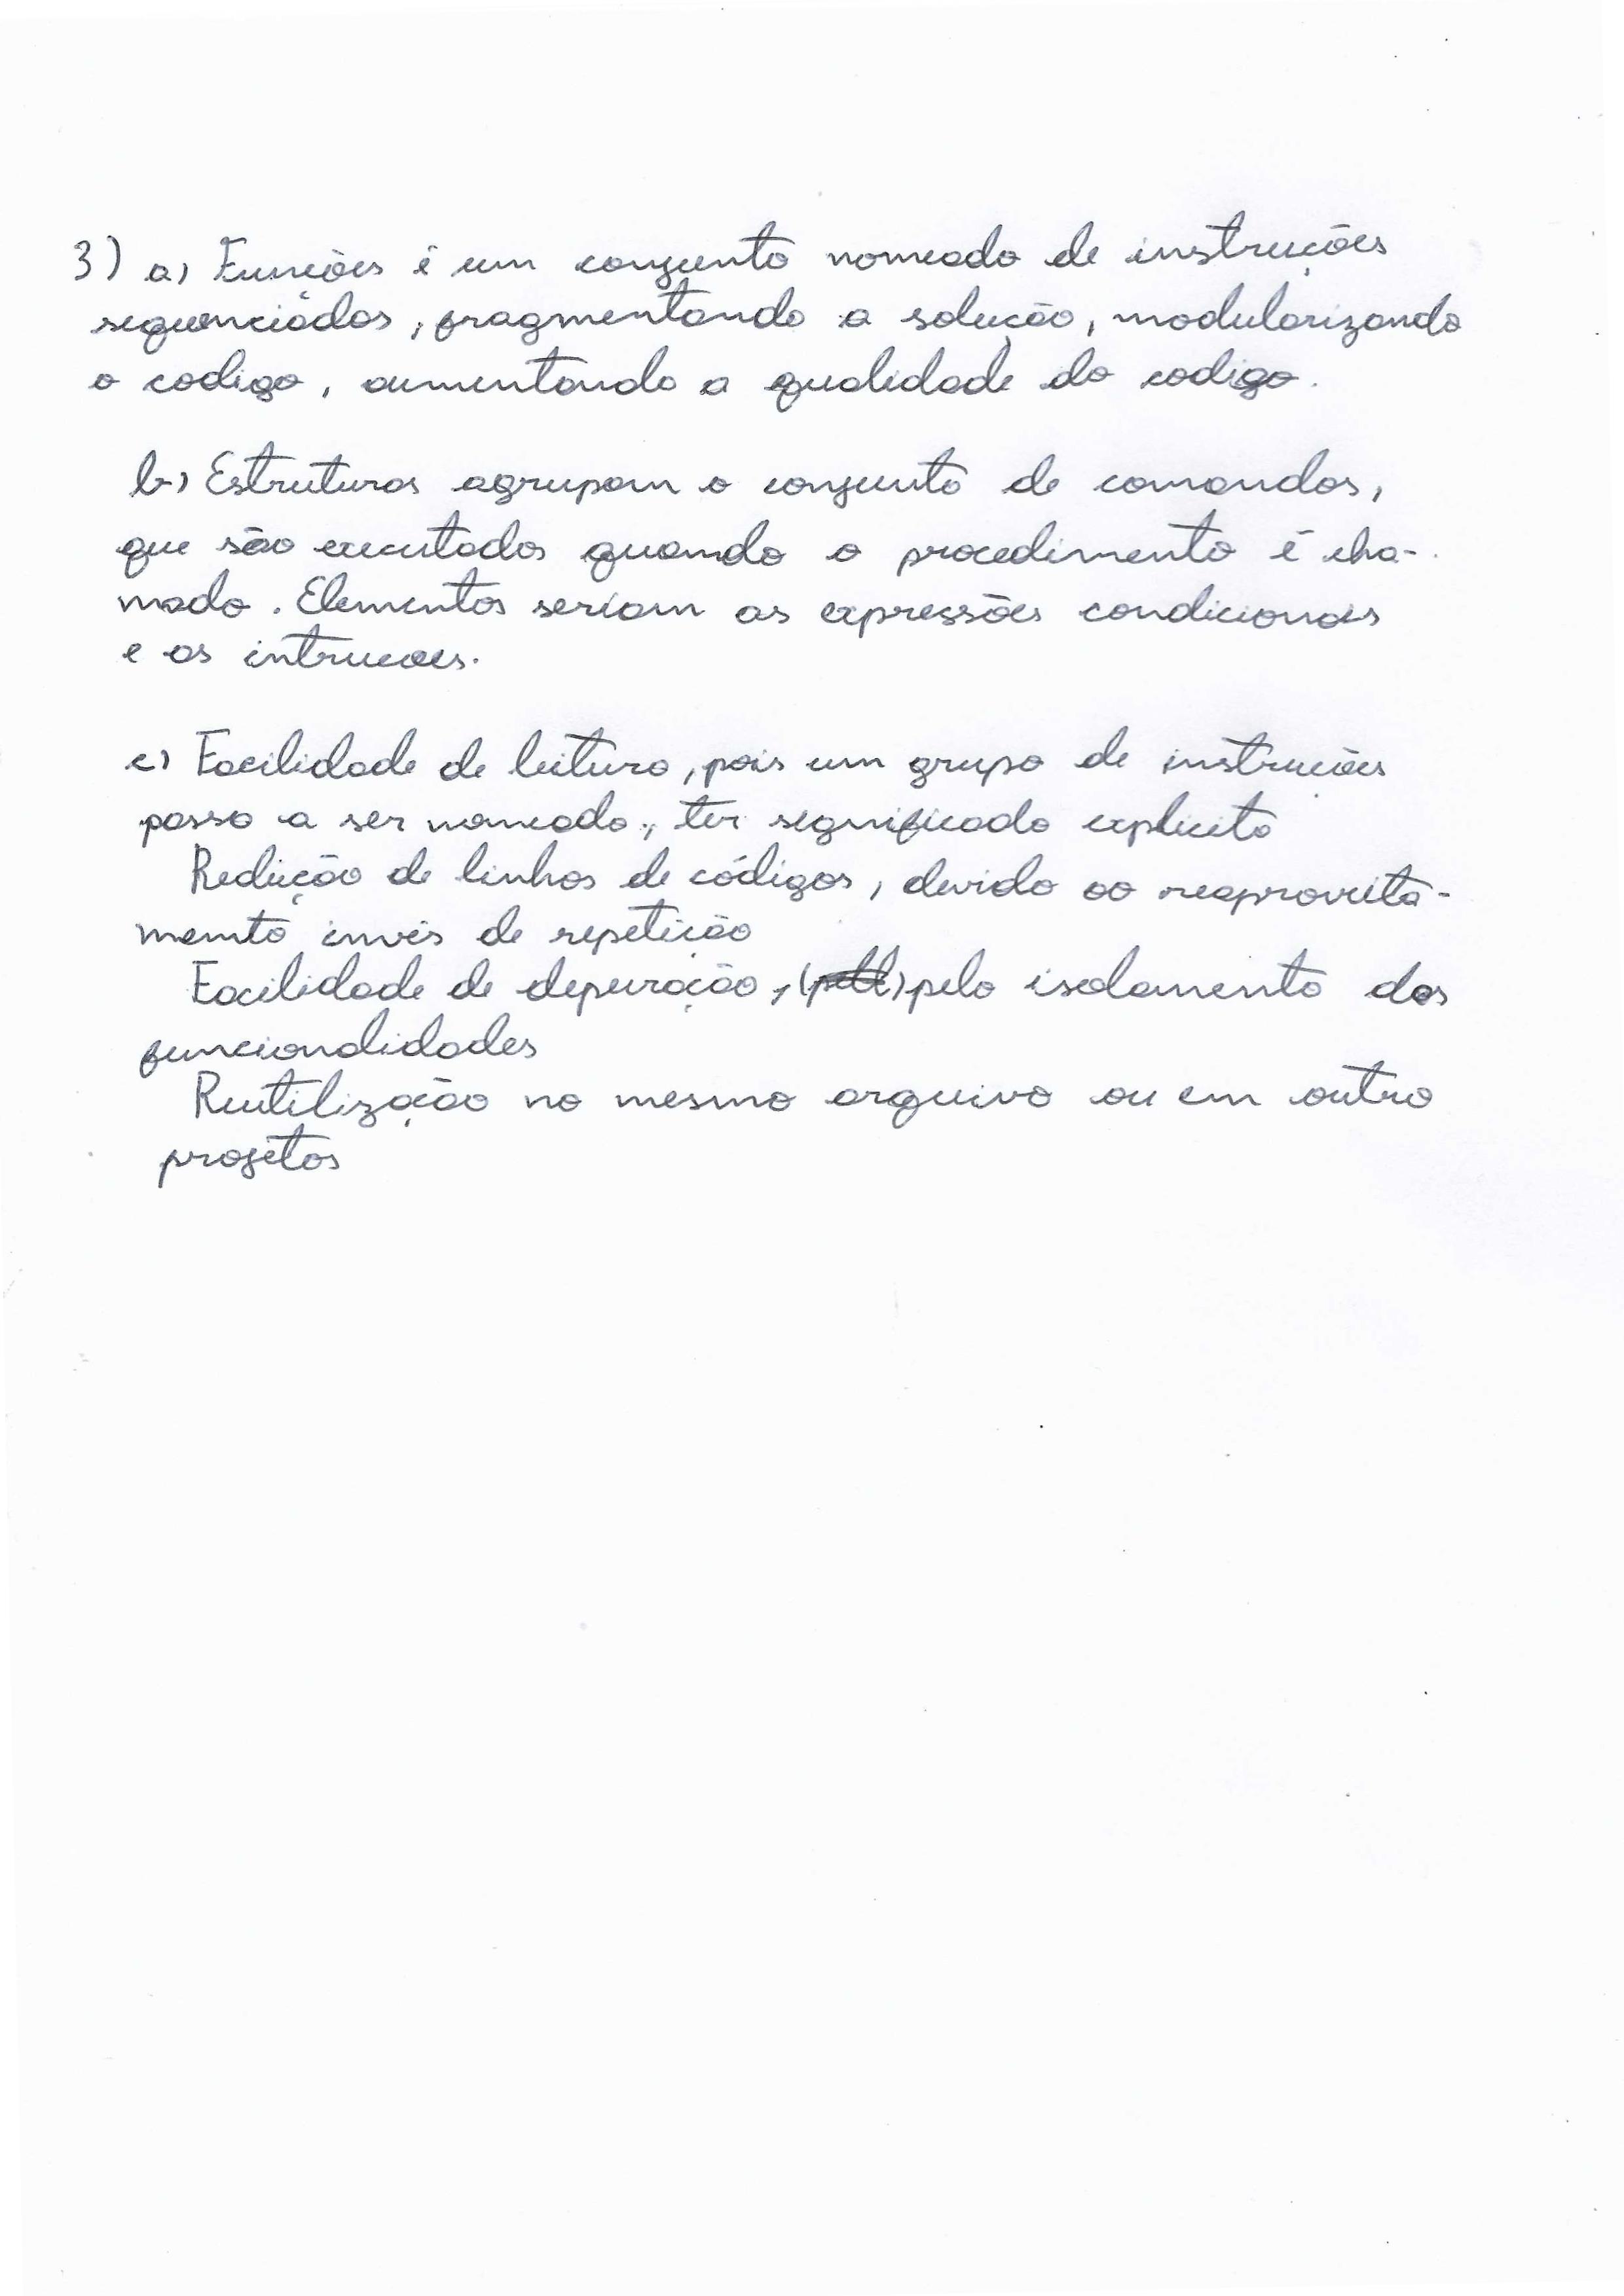 3) a) Funções é um conjunto nomeado de instruções
sequenciadas, fragmentando a solução, modularizando
o codigo, aumentando a qualidade do codigo.
b) Estruturas agrupam o conjunto de comandos,
que são executados quando o procedimento é cha-
mado. Elementos seriam as expressões condicionais
e as intrucoes.
c) Facilidade de leitura, pois um grupo de instruções
passa a ser nomeado, ter significado explicito
Redução de linhas de códigos, devido ao reaproveita-
mento invés de repetição
Facilidade de depuração, pelo isolamento das
funcionalidades
Reutilização no mesmo arquivo ou em outro
projetos